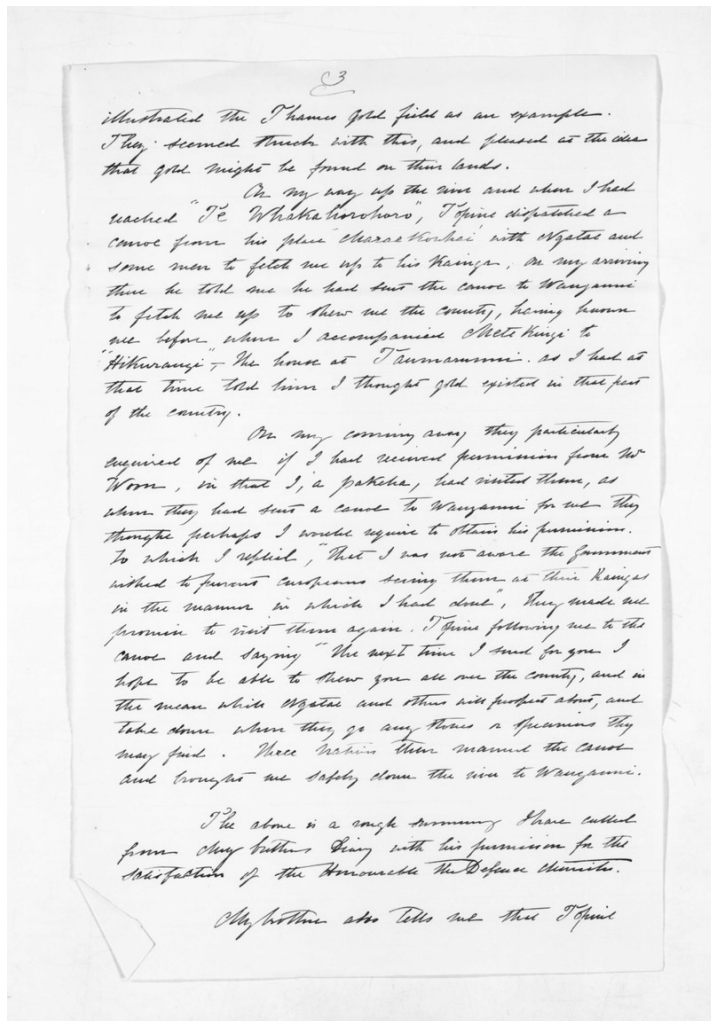 3
illustrated the Thames gold field as an example.
They seemed struck with this, and pleased at the idea
that gold might be found on their lands.
On my way up the river and when I had
reached "Te Whakahorohoro", Topine dispatched a
canoe from his place with Ngatae and
some men to fetch me up to his Kainga; on my arriving
there he told me he had sent the canoe to Wanganui
to fetch me up to shew me the country, having known
me before when I accompanied Mete Kingi to
"Hikurangi", the house at Taumarunui. as I had at
that time told him I thought gold existed in that part
of the country.
On my coming away they particularly
enquired of me if I had received permission from Mr
Woon, in that I, a pakeha, had visited them, as
when they had sent a canoe to Wanganui for me they
thought perhaps I would require to obtain his permission.
To which I replied, "that I was not aware the Government
wished to prevent Europeans seeing them at their Kaingas
in the manner in which I had done", they made me
promise to visit them again. Topine following me to the
canoe and saying "the next time I send for you I
hope to be able to shew you all over the country, and in
the mean while Ngatae and others will prospect about, and
take down when they go any stones or specimens they
may find. Three Natives then manned the canoe
and brought me safely down the river to Wanganui.
The above is a rough summary I have culled
from my brothers Diary with his permission for the
satisfaction of the Honourable the Defence Minister.
My brother also tells me that Topine